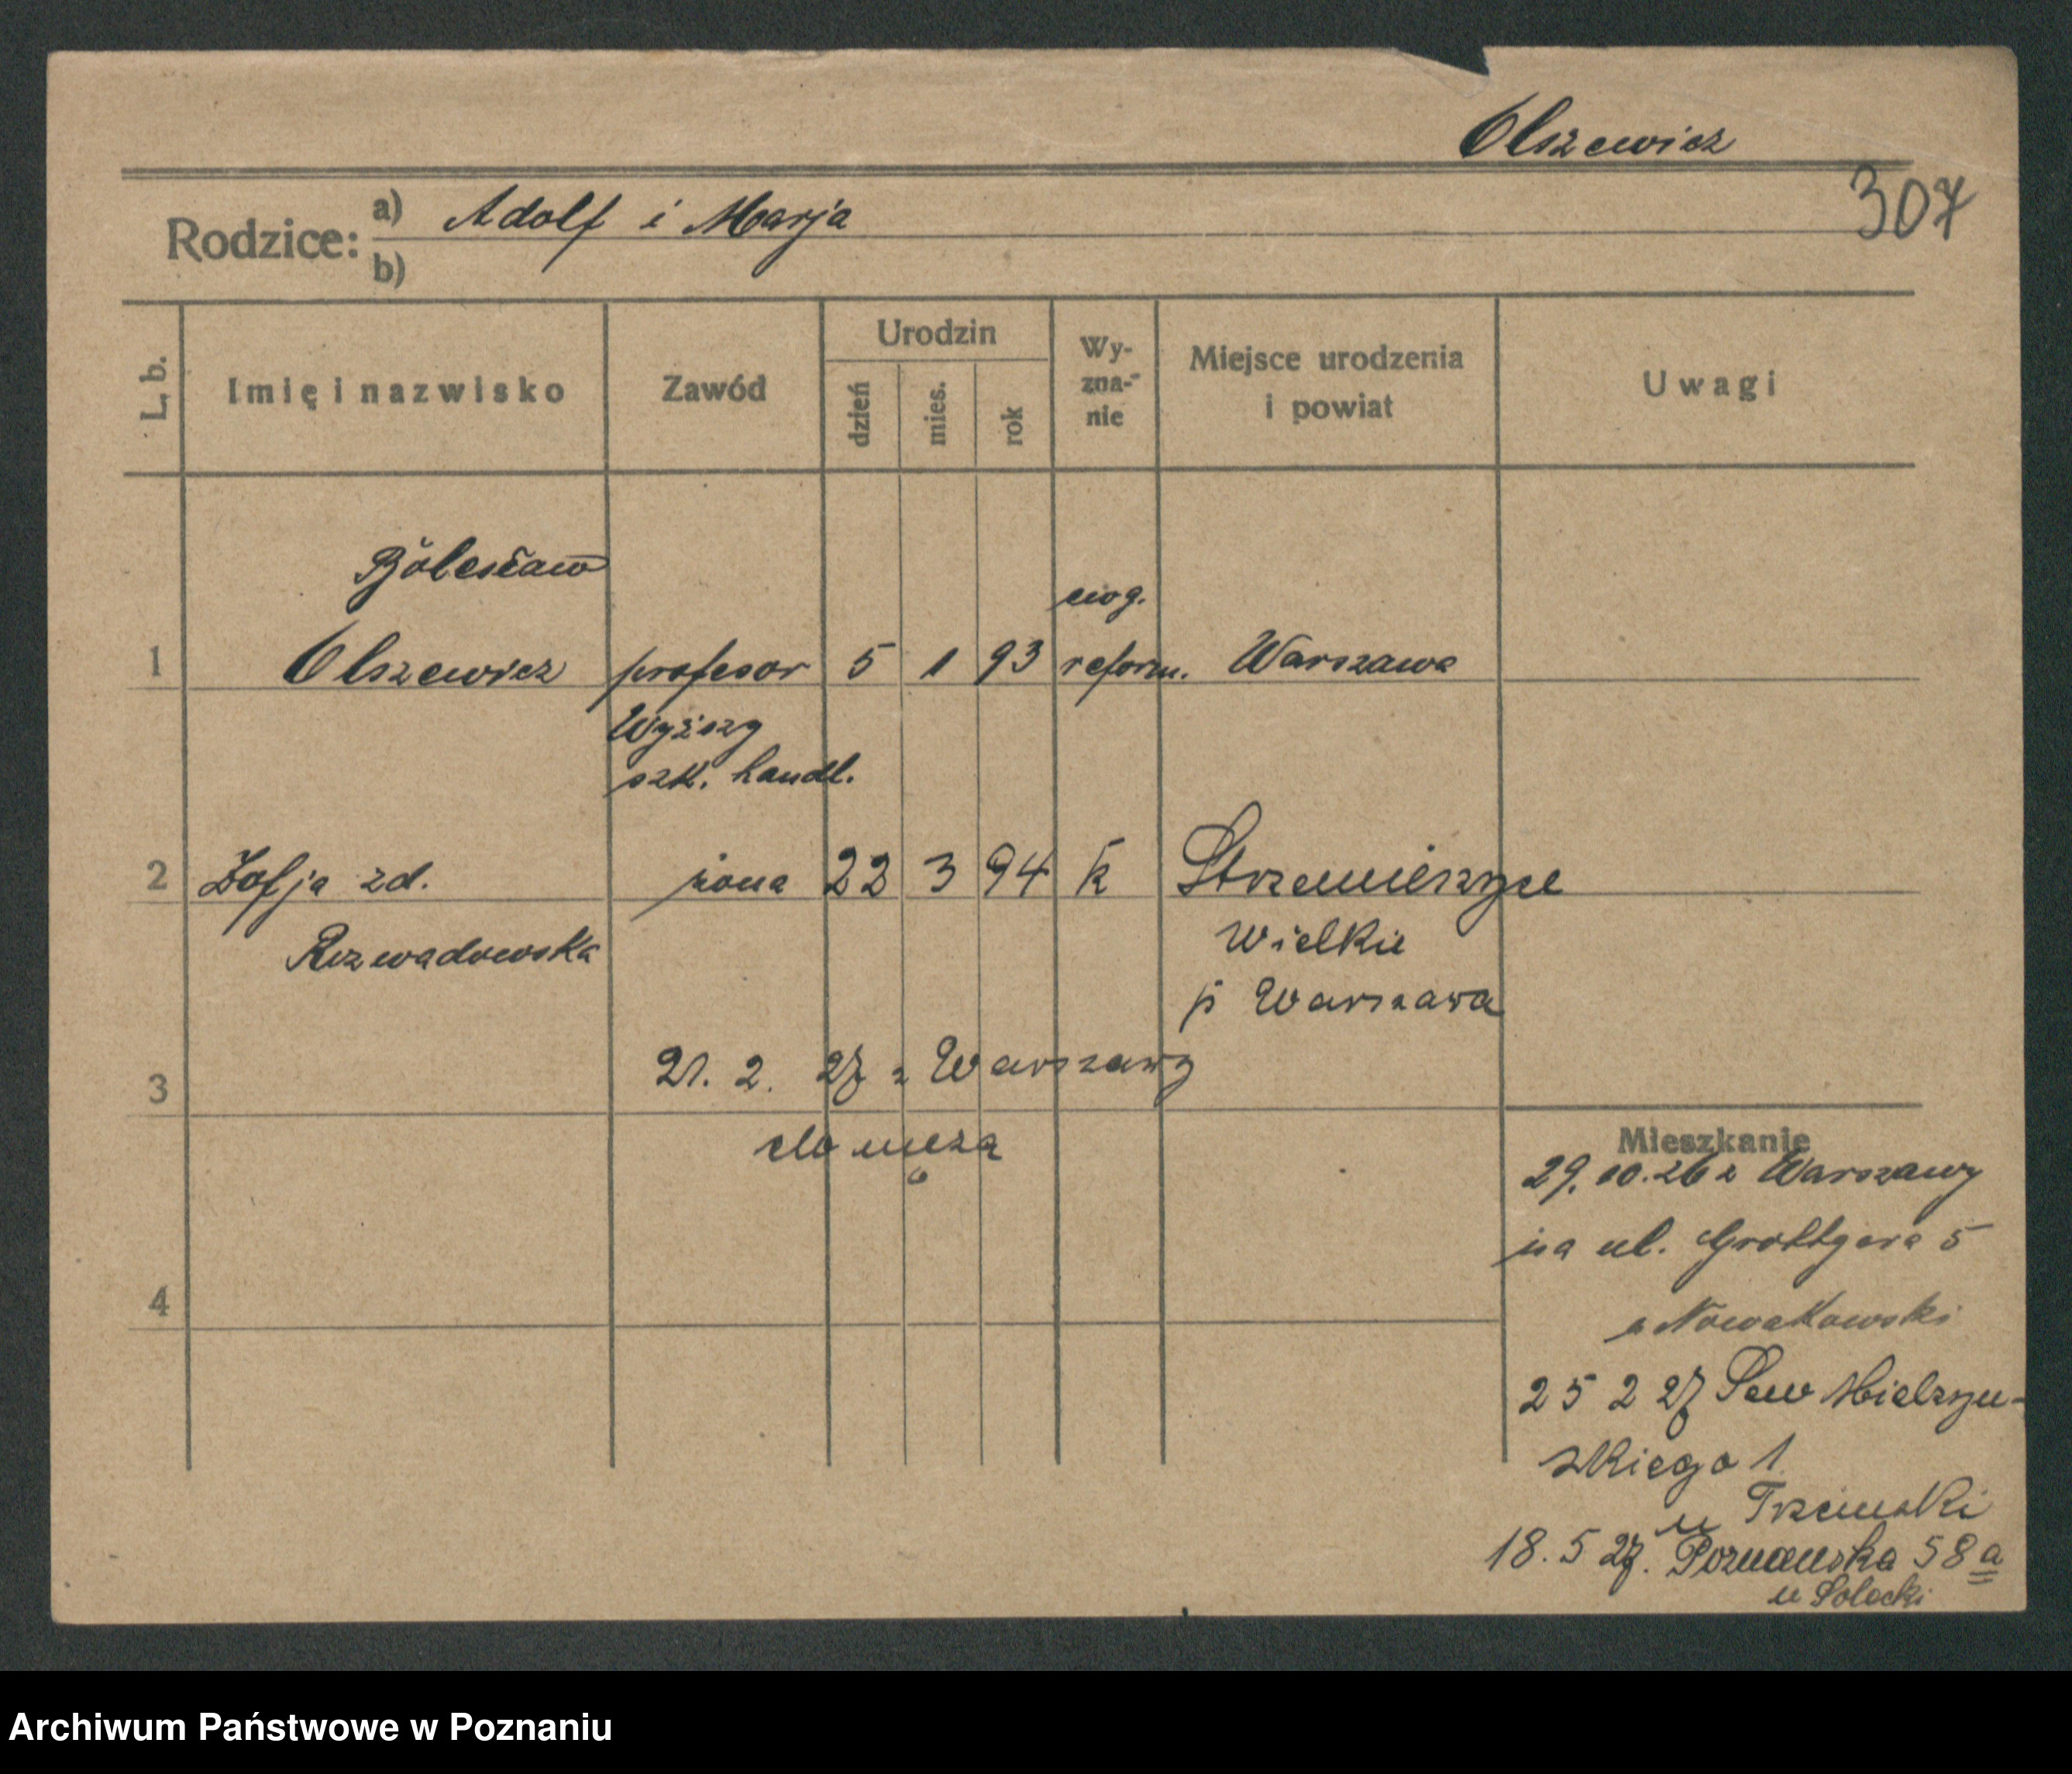 Olszewicz
307
Rodzice: a) Adolf i Marja
b)
L. b. Imię i nazwisko Zawód Urodzin dzień mies. rok Wy-zna-nie Miejsce urodzenia i powiat Uwagi
Bolesław
ewg.
1 Olszewicz profesor 5 1 93 reform. Warszawa
Wyższy
szk. handl.
2 Zofja zd. żona 22 3 94 k Strzemieszyce
Rozwadowska Wielkie
p Warszawa
3 21. 2. 27 z Warszawy
do męża
4
Mieszkanie
29. 10. 26 z Warszawy
na ul. Grottgera 5
u Nowakowski
25 2 27 Sew Mielżyń-
skiego 1
u Trzciński
18. 5 27. Poznańska 58a
u Solecki
Archiwum Państwowe w Poznaniu